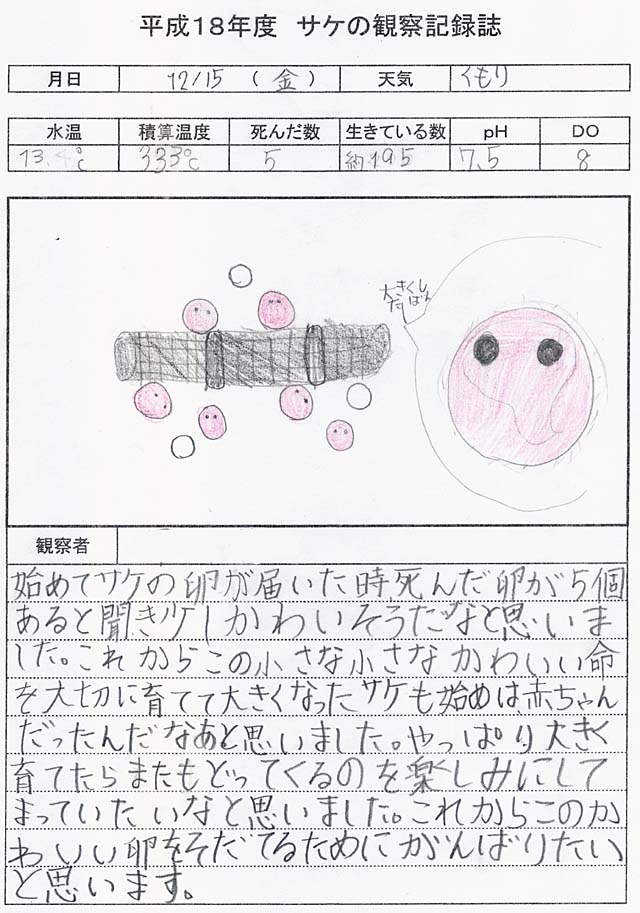 平成18年度 サケの観察記録誌
月日 12/15 (金) 天気 くもり
水温 積算温度 死んだ数 生きている数 pH DO
13.4℃ 333℃ 5 約195 7.5 8
大きくし
た
観察者
始めてサケの卵が届いた時死んだ卵が5個
あると聞き少しかわいそうだなと思いま
した。これからこの小さな小さなかわいい命
を大切に育てて大きくなったサケも始めは赤ちゃん
だったんだなあと思いました。やっぱり大きく
育てたらまたもどってくるのを楽しみにして
まっていたいなと思いました。これからこのか
わいい卵をそだてるためにがんばりたい
と思います。